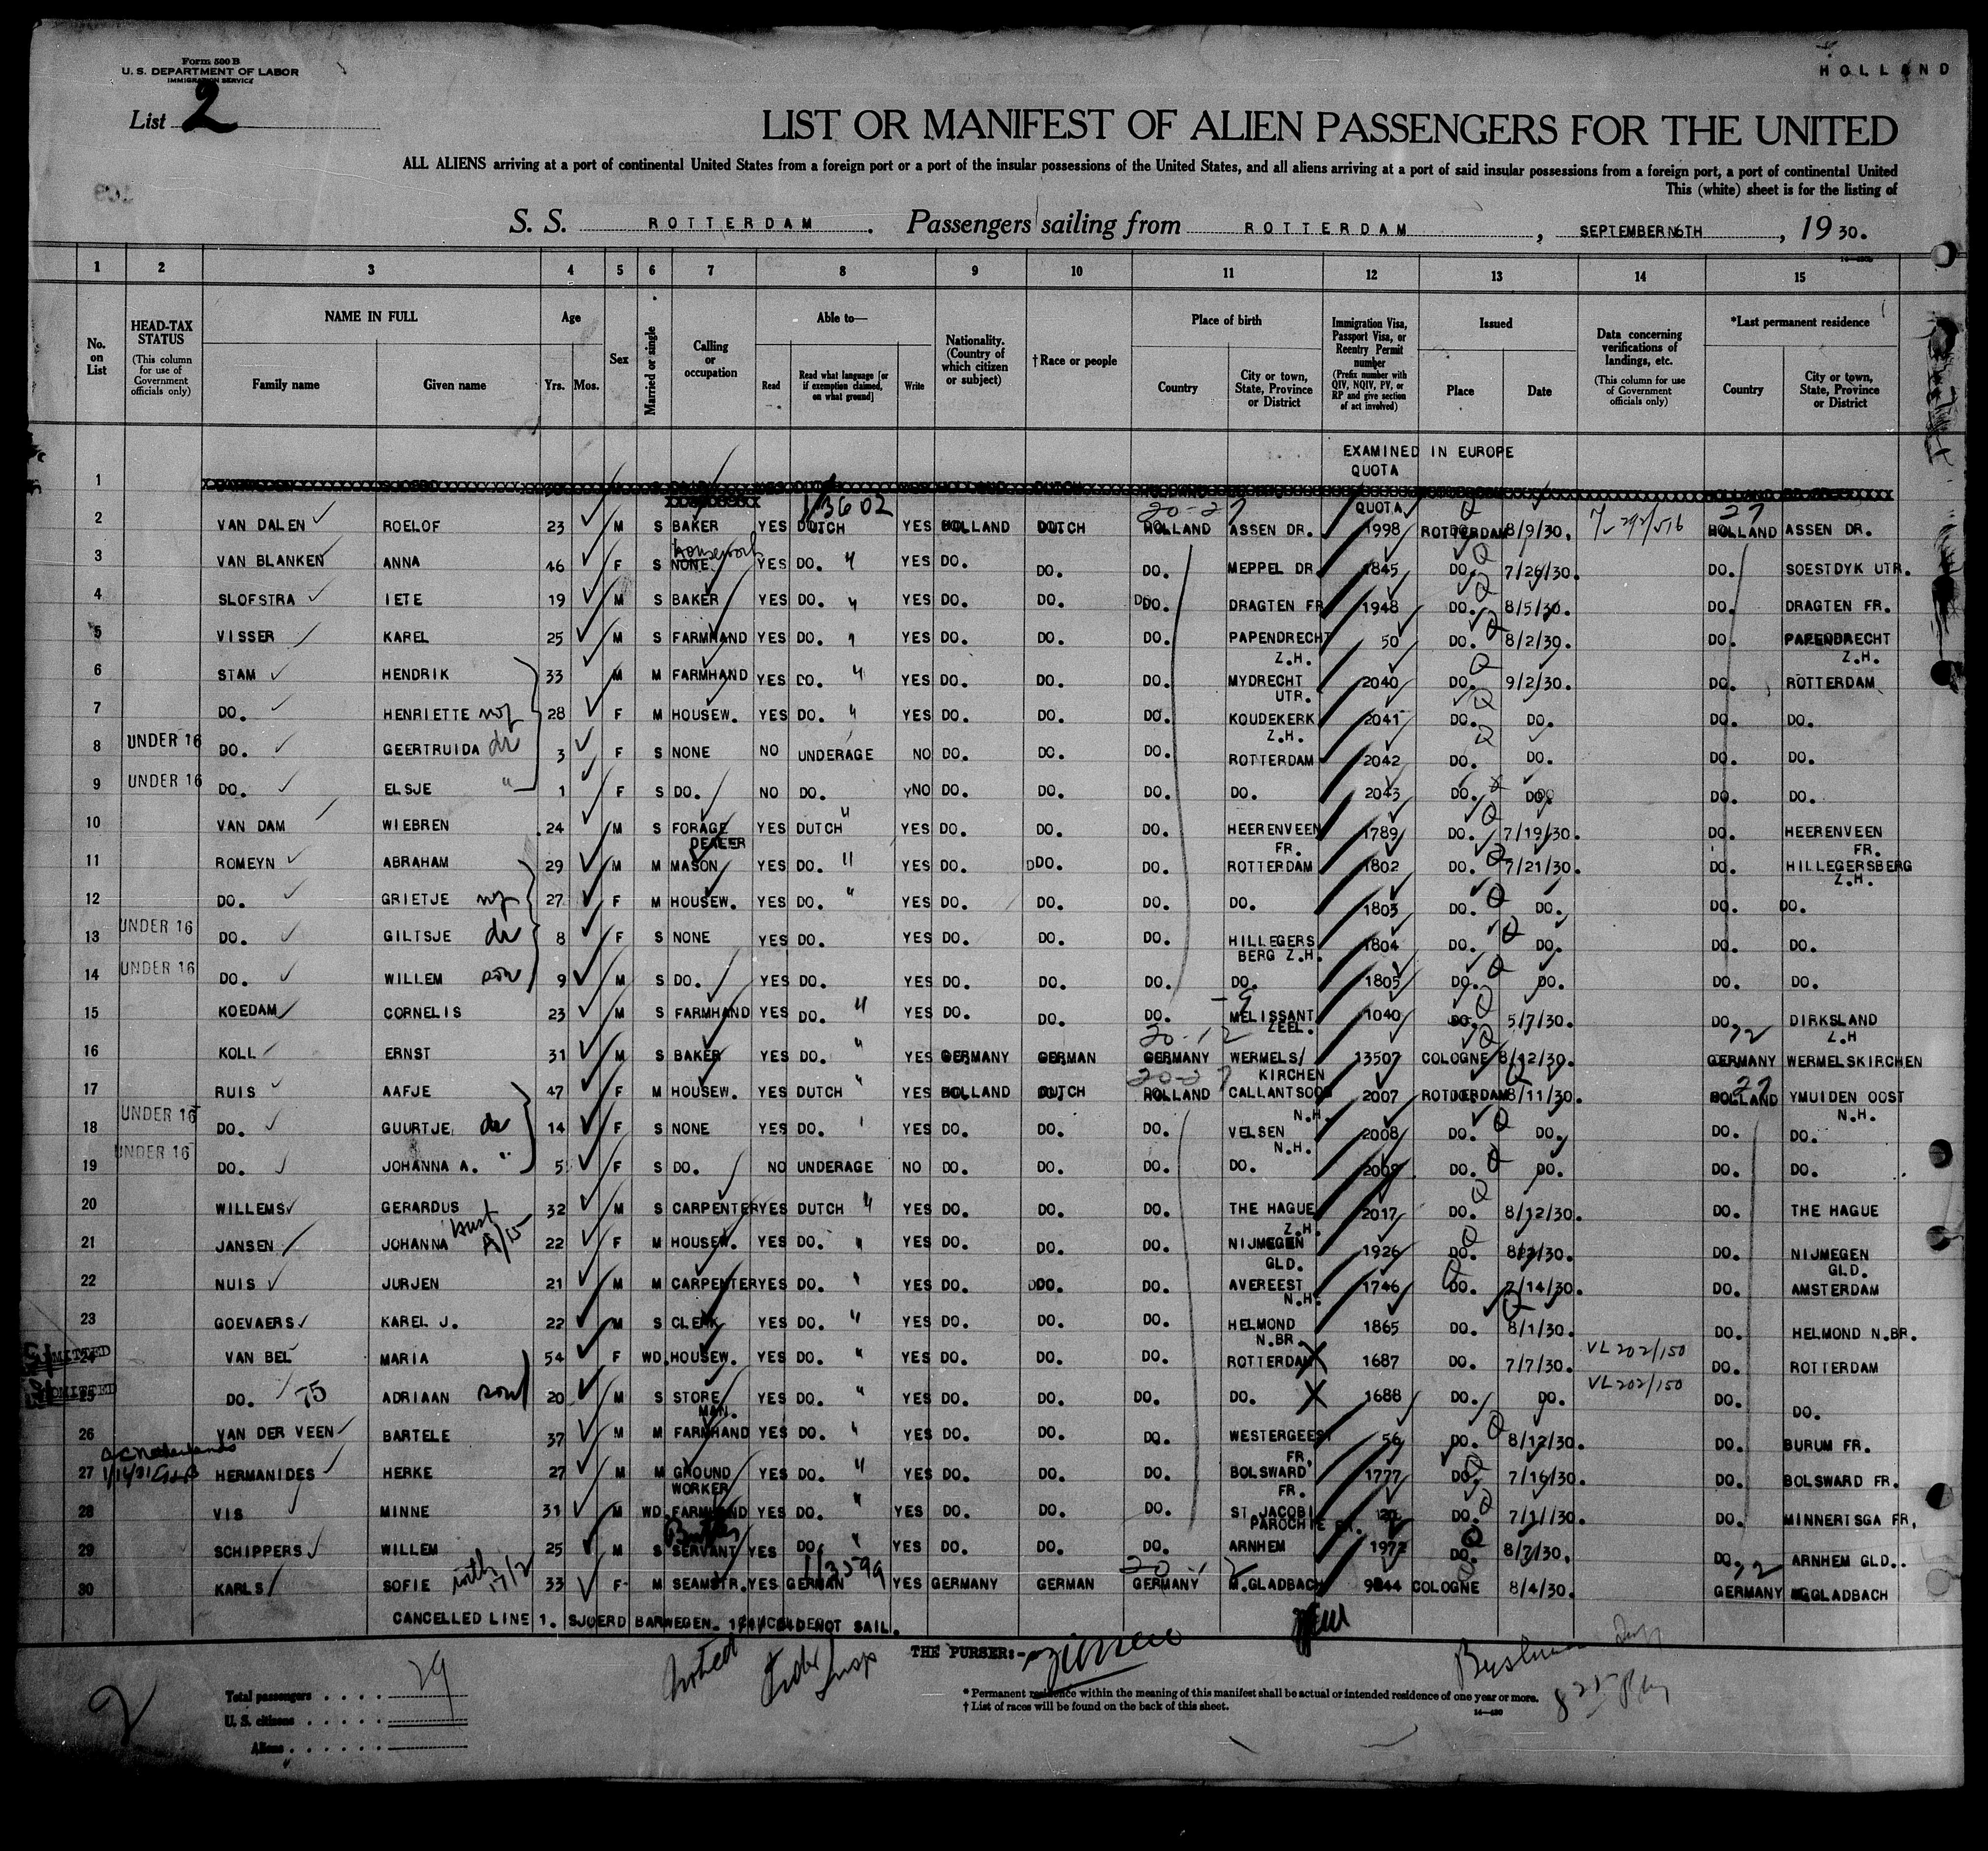 Form 500 B
U. S. DEPARTMENT OF LABOR
IMMIGRATION SERVICE
HOLLAND
List 2
LIST OR MANIFEST OF ALIEN PASSENGERS FOR THE UNITED
ALL ALIENS arriving at a port of continental United States from a foreign port or a port of the insular possessions of the United States, and all aliens arriving at a port of said insular possessions from a foreign port, a port of continental United
This (white) sheet is for the listing of
S. S. ROTTERDAM. Passengers sailing from ROTTERDAM, SEPTEMBER 6TH, 19 30.
1 2 3 4 5 6 7 8 9 10 11 12 13 14 15
No. on List
HEAD-TAX STATUS (This column for use of Government officials only)
NAME IN FULL Family name Given name
Age Yrs. Mos.
Sex
Married or single
Calling or occupation
Able to— Read Read what language [or if exemption claimed, on what ground] Write
Nationality. (Country of which citizen or subject)
†Race or people
Place of birth Country City or town, State, Province or District
Immigration Visa, Passport Visa, or Reentry Permit number (Prefix number with QIV, NQIV, PV, or RP and give section of act involved)
Issued Place Date
Data concerning verifications of landings, etc. (This column for use of Government officials only)
*Last permanent residence Country City or town, State, Province or District
EXAMINED IN EUROPE
QUOTA
1
QUOTA
2 VAN DALEN ROELOF 23 M S BAKER YES DUTCH YES HOLLAND DUTCH HOLLAND ASSEN DR. 1998 ROTTERDAM 8/9/30. HOLLAND ASSEN DR.
3 VAN BLANKEN ANNA 46 F S NONE housework YES DO. YES DO. DO. DO. MEPPEL DR. 1845 DO. 7/26/30. DO. SOESTDYK UTR.
4 SLOFSTRA IETE 19 M S BAKER YES DO. YES DO. DO. DO. DRAGTEN FR 1948 DO. 8/5/30. DO. DRAGTEN FR.
5 VISSER KAREL 25 M S FARMHAND YES DO. YES DO. DO. DO. PAPENDRECHT Z.H. 50 DO. 8/2/30. DO. PAPENDRECHT Z.H.
6 STAM HENDRIK 33 M M FARMHAND YES DO. YES DO. DO. DO. MYDRECHT UTR. 2040 DO. 9/2/30. DO. ROTTERDAM
7 DO. HENRIETTE 28 F M HOUSEW. YES DO. YES DO. DO. DO. KOUDEKERK Z.H. 2041 DO. DO. DO. DO.
8 UNDER 16 DO. GEERTRUIDA 3 F S NONE NO UNDERAGE NO DO. DO. DO. ROTTERDAM 2042 DO. DO. DO. DO.
9 UNDER 16 DO. ELSJE 1 F S DO. NO DO. NO DO. DO. DO. DO. 2043 DO. DO. DO. DO.
10 VAN DAM WIEBREN 24 M S FORAGE DEALER YES DUTCH YES DO. DO. DO. HEERENVEEN FR. 1789 DO. 7/19/30. DO. HEERENVEEN FR.
11 ROMEYN ABRAHAM 29 M M MASON YES DO. YES DO. DO. DO. ROTTERDAM 1802 DO. 7/21/30. DO. HILLEGERSBERG Z.H.
12 DO. GRIETJE 27 F M HOUSEW. YES DO. YES DO. DO. DO. DO. 1803 DO. DO. DO. DO.
13 UNDER 16 DO. GILTSJE 8 F S NONE YES DO. YES DO. DO. DO. HILLEGERS BERG Z.H. 1804 DO. DO. DO. DO.
14 UNDER 16 DO. WILLEM son 9 M S DO. YES DO. YES DO. DO. DO. DO. 1805 DO. DO. DO. DO.
15 KOEDAM CORNELIS 23 M S FARMHAND YES DO. YES DO. DO. DO. MELISSANT ZEEL. 1040 DO. 5/7/30. DO. DIRKSLAND Z.H
16 KOLL ERNST 31 M S BAKER YES DO. YES GERMANY GERMAN GERMANY WERMELS/ KIRCHEN 13507 COLOGNE 8/12/30. GERMANY WERMELSKIRCHEN
17 RUIS AAFJE 47 F M HOUSEW. YES DUTCH YES HOLLAND DUTCH HOLLAND CALLANTSOOG N.H. 2007 ROTTERDAM 8/11/30. HOLLAND YMUIDEN OOST N.H.
18 UNDER 16 DO. GUURTJE 14 F S NONE YES DO. YES DO. DO. DO. VELSEN N.H. 2008 DO. DO. DO. DO.
19 UNDER 16 DO. JOHANNA A. 5 F S DO. NO UNDERAGE NO DO. DO. DO. DO. 2009 DO. DO. DO. DO.
20 WILLEMS GERARDUS 32 M S CARPENTER YES DUTCH YES DO. DO. DO. THE HAGUE Z.H. 2017 DO. 8/12/30. DO. THE HAGUE
21 JANSEN JOHANNA 22 F M HOUSEW. YES DO. YES DO. DO. DO. NIJMEGEN GLD. 1926 DO. DO. NIJMEGEN GLD.
22 NUIS JURJEN 21 M M CARPENTER YES DO. YES DO. DO. DO. AVEREEST N.H. 1746 DO. 7/14/30. DO. AMSTERDAM
23 GOEVAERS KAREL J. 22 M S CLERK YES DO. YES DO. DO. DO. HELMOND N.BR 1865 DO. 8/1/30. DO. HELMOND N.BR.
24 ADMITTED VAN BEL MARIA 54 F WD. HOUSEW. YES DO. YES DO. DO. DO. ROTTERDAM 1687 DO. 7/7/30. VL 202/150 DO. ROTTERDAM
25 ADMITTED DO. 75 ADRIAAN son 20 M S STORE MAN. YES DO. YES DO. DO. DO. DO. 1688 DO. DO. VL202/150 DO. DO.
26 VAN DER VEEN BARTELE 37 M M FARMHAND YES DO. YES DO. DO. DO. WESTERGEEST FR. 56 DO. 8/12/30. DO. BURUM FR.
27 HERMANIDES HERKE 27 M M GROUND WORKER YES DO. YES DO. DO. DO. BOLSWARD FR. 1777 DO. 7/16/30. DO. BOLSWARD FR.
28 VIS MINNE 31 M WD. FARMHAND YES DO. YES DO. DO. DO. ST JACOBI PAROCHIE DO. 7/1/30. DO. MINNERTSGA FR.
29 SCHIPPERS WILLEM 25 M S SERVANT YES DO. YES DO. DO. DO. ARNHEM 1972 DO. 8/7/30. DO. ARNHEM GLD.
30 KARLS SOFIE 33 F M SEAMSTR. YES GERMAN YES GERMANY GERMAN GERMANY M.GLADBACH 9844 COLOGNE 8/4/30. GERMANY M.GLADBACH
CANCELLED LINE 1. SJOERD BARWEGEN. NOT SAIL.
THE PURSER:-
Total passengers . . . . 29
U. S. citizens . . . . .
Aliens . . . . . .
2
* Permanent residence within the meaning of this manifest shall be actual or intended residence of one year or more.
† List of races will be found on the back of this sheet.